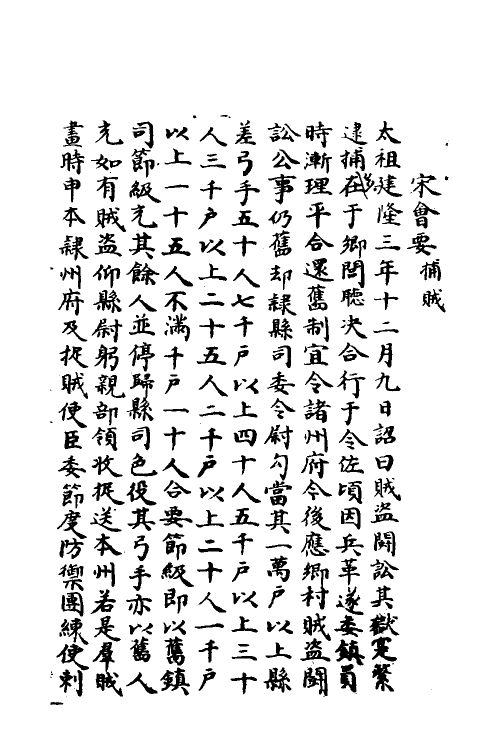 宋會要 捕賊
太祖建隆三年十二月九日詔曰賊盜鬪訟其獄寔繁
逮捕多在于鄉閭聽决合行于令佐頃因兵革遂委鎮員
時漸理平合還舊制宜令諸州府今後應鄉村賊盜鬪
訟公事仍舊却隸縣司委令尉勾當其一萬戶以上縣
差弓手五十人七千戶以上四十人五千戶以上三十
人三千戶以上二十五人二千戶以上二十人一千戶
以上一十五人不滿千戶一十人合要節級即以舊鎮
司節級充其餘人並停歸縣司色役其弓手亦以舊人
充如有賊盜仰縣尉躬親部領收捉送本州若是羣賊
畫時申本隸州府及捉賊使臣委節度防禦團練使刺